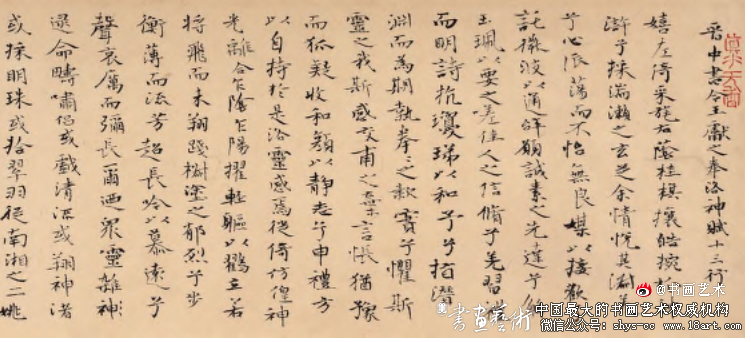 晋中書令王獻之奉洛神賦十三行
嬉左倚采旄右蔭桂棋攘皓捥
滸兮採湍瀨之玄芝余情悅其淑
兮心振蕩而不怡無良媒以接歡
託微波以通辭願誠素之先達兮
玉珮以要之嗟佳人之信脩兮羌習
而明詩抗瓊珶以和予兮指潛
淵而為期執拳〻之款實兮懼斯
靈之我斯感交甫之棄言悵猶豫
而狐疑收和顏以靜志兮申禮方
以自持於是洛靈感焉徙倚仿偟神
光離合乍陰乍陽擢輕軀以鶴立若
將飛而未翔踐椒塗之郁烈兮步
衡薄而流芳超長吟以慕遠兮
聲哀厲而彌長爾迺眾靈雜神
還命疇嘯侶或戲清流或翔神渚
或採明珠或拾翠羽從南湘之二姚
@书画艺术
書畫藝術
中国最大的书画艺术权威机构
微信公众号: shys-cc www.18art.com